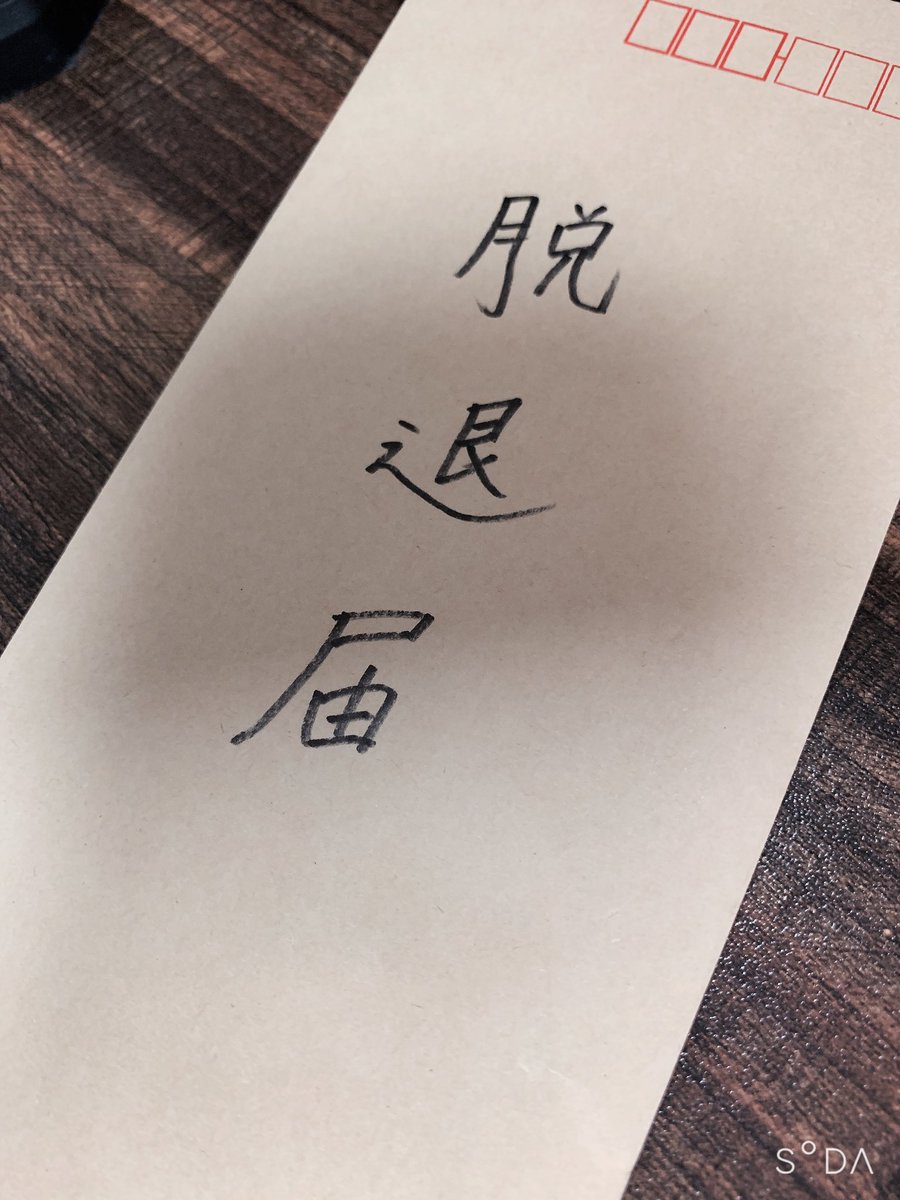 脱退届
SODA